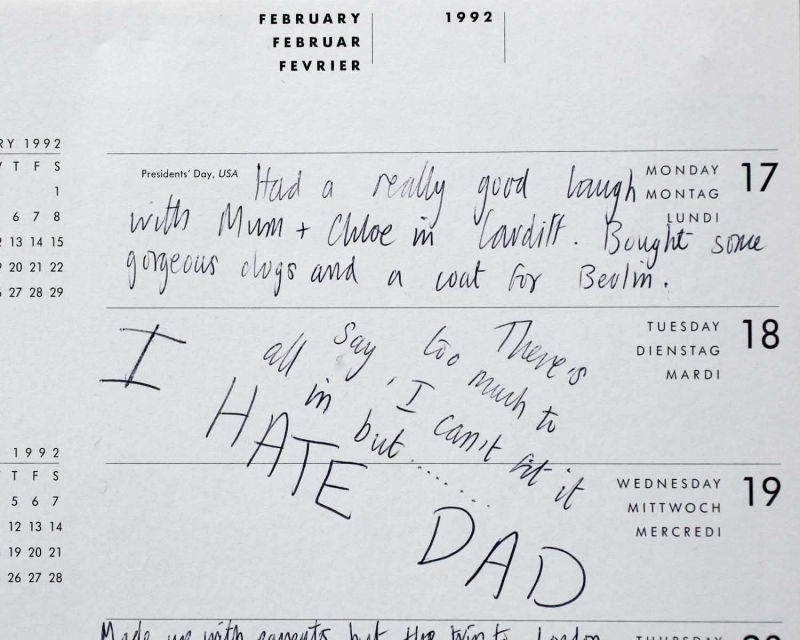 FEBRUARY 1992
FEBRUAR
FEVRIER
RY 1992
T F S
1
6 7 8
13 14 15
20 21 22
27 28 29
Presidents' Day, USA
MONDAY 17
MONTAG
LUNDI
Had a really good laugh
with Mum + Chloe in Cardiff. Bought some
gorgeous clogs and a coat for Berlin.
TUESDAY 18
DIENSTAG
MARDI
There's
too much to
say, I can't fit it
all in but........
I HATE DAD
1992
T F S
5 6 7
12 13 14
19 20 21
26 27 28
WEDNESDAY 19
MITTWOCH
MERCREDI
Made up with parents but the trip to London
THURSDAY 20